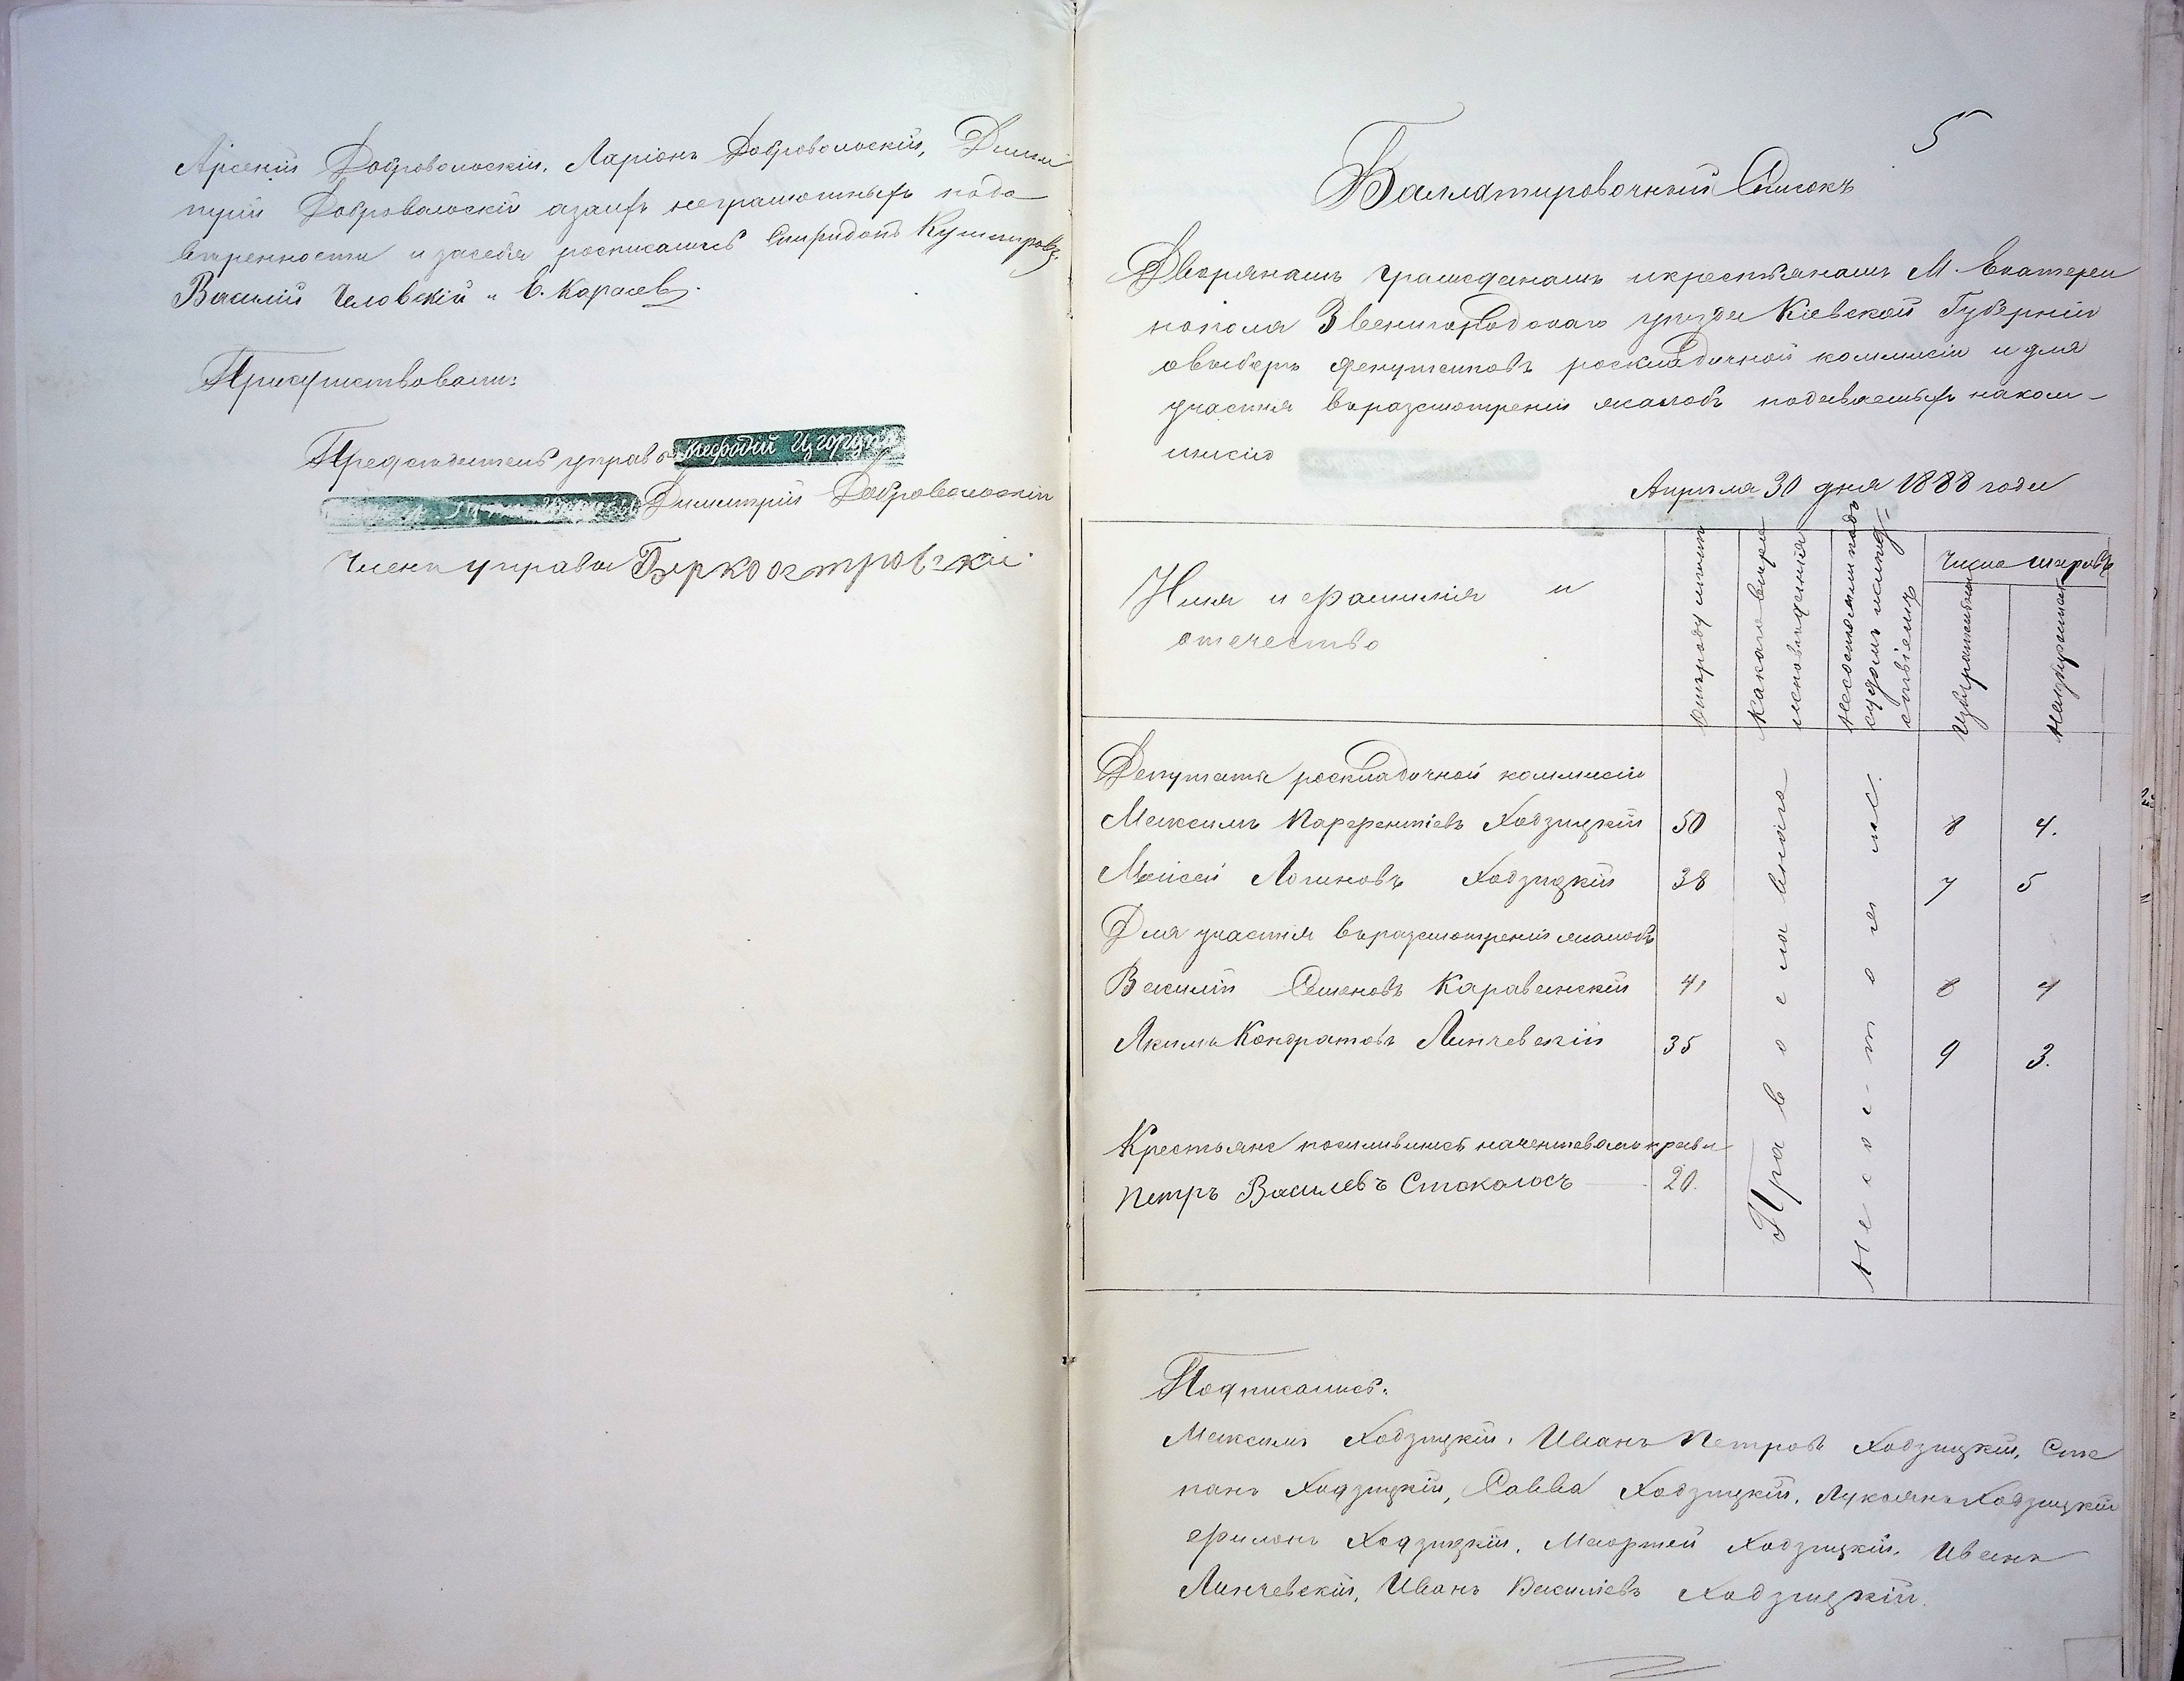 Арсеній Добровольскій, Ларіонъ Добровольскій, Дими
трій Добровольскій азаихъ неграмотныхъподо
вѣренности и засебя росписались Спиридонъ Кушнировъ,
Василій Человскій и Е. Карасевъ.
Присутствовали:
Председатель управы Мефодій
Димитрій Добровольскій
Членъ управы Бѣркоостровскій
5
Баллатировочный Списокъ
Дворянамъ гражданамъ икрестьянамъ М. Екатери
нополя Звенигородскаго уѣзда Кіевской Губерніи
овыборѣ депутатовъ роскладочной коммисіи и для
участія въразсмотреніи жалобъ подаваемыхъ наком-
мисію
Апрѣля 30 дня 1888 года
Имя и фамилія и
отечество
Отъ роду лѣтъ
Какого вѣро
исповѣданія
Несостоялили подъ
судомъ исльд-
ствіемъ
Число шаровъ
Избирательныхъ
Неизбирательныхъ
Депутаты роскладочной коммисіи
Максимъ Парфентіевъ Ходзицкій 50 8 4.
Моисей Логиновъ Ходзицкій 38 7 5
Для участія въразсмотреніи жалобъ
Василій Семеновъ Караванскій 41 8 4
Якимъ Кондратовъ Линчевскій 35 9 3.
Крестьяне
Петръ Василевъ Стоколосъ 20.
Православнаго
Несостоялъ
Подписались:
Максимъ Ходзицкій, Иванъ Петровъ Ходзицкій, Сте
панъ Ходзицкій, Савва Ходзицкій, Лукіянъ Ходзицкій
Филонъ Ходзицкій, Мафтей Ходзицкій, Иванъ
Линчевскій, Иванъ Василіевъ Ходзицкій.